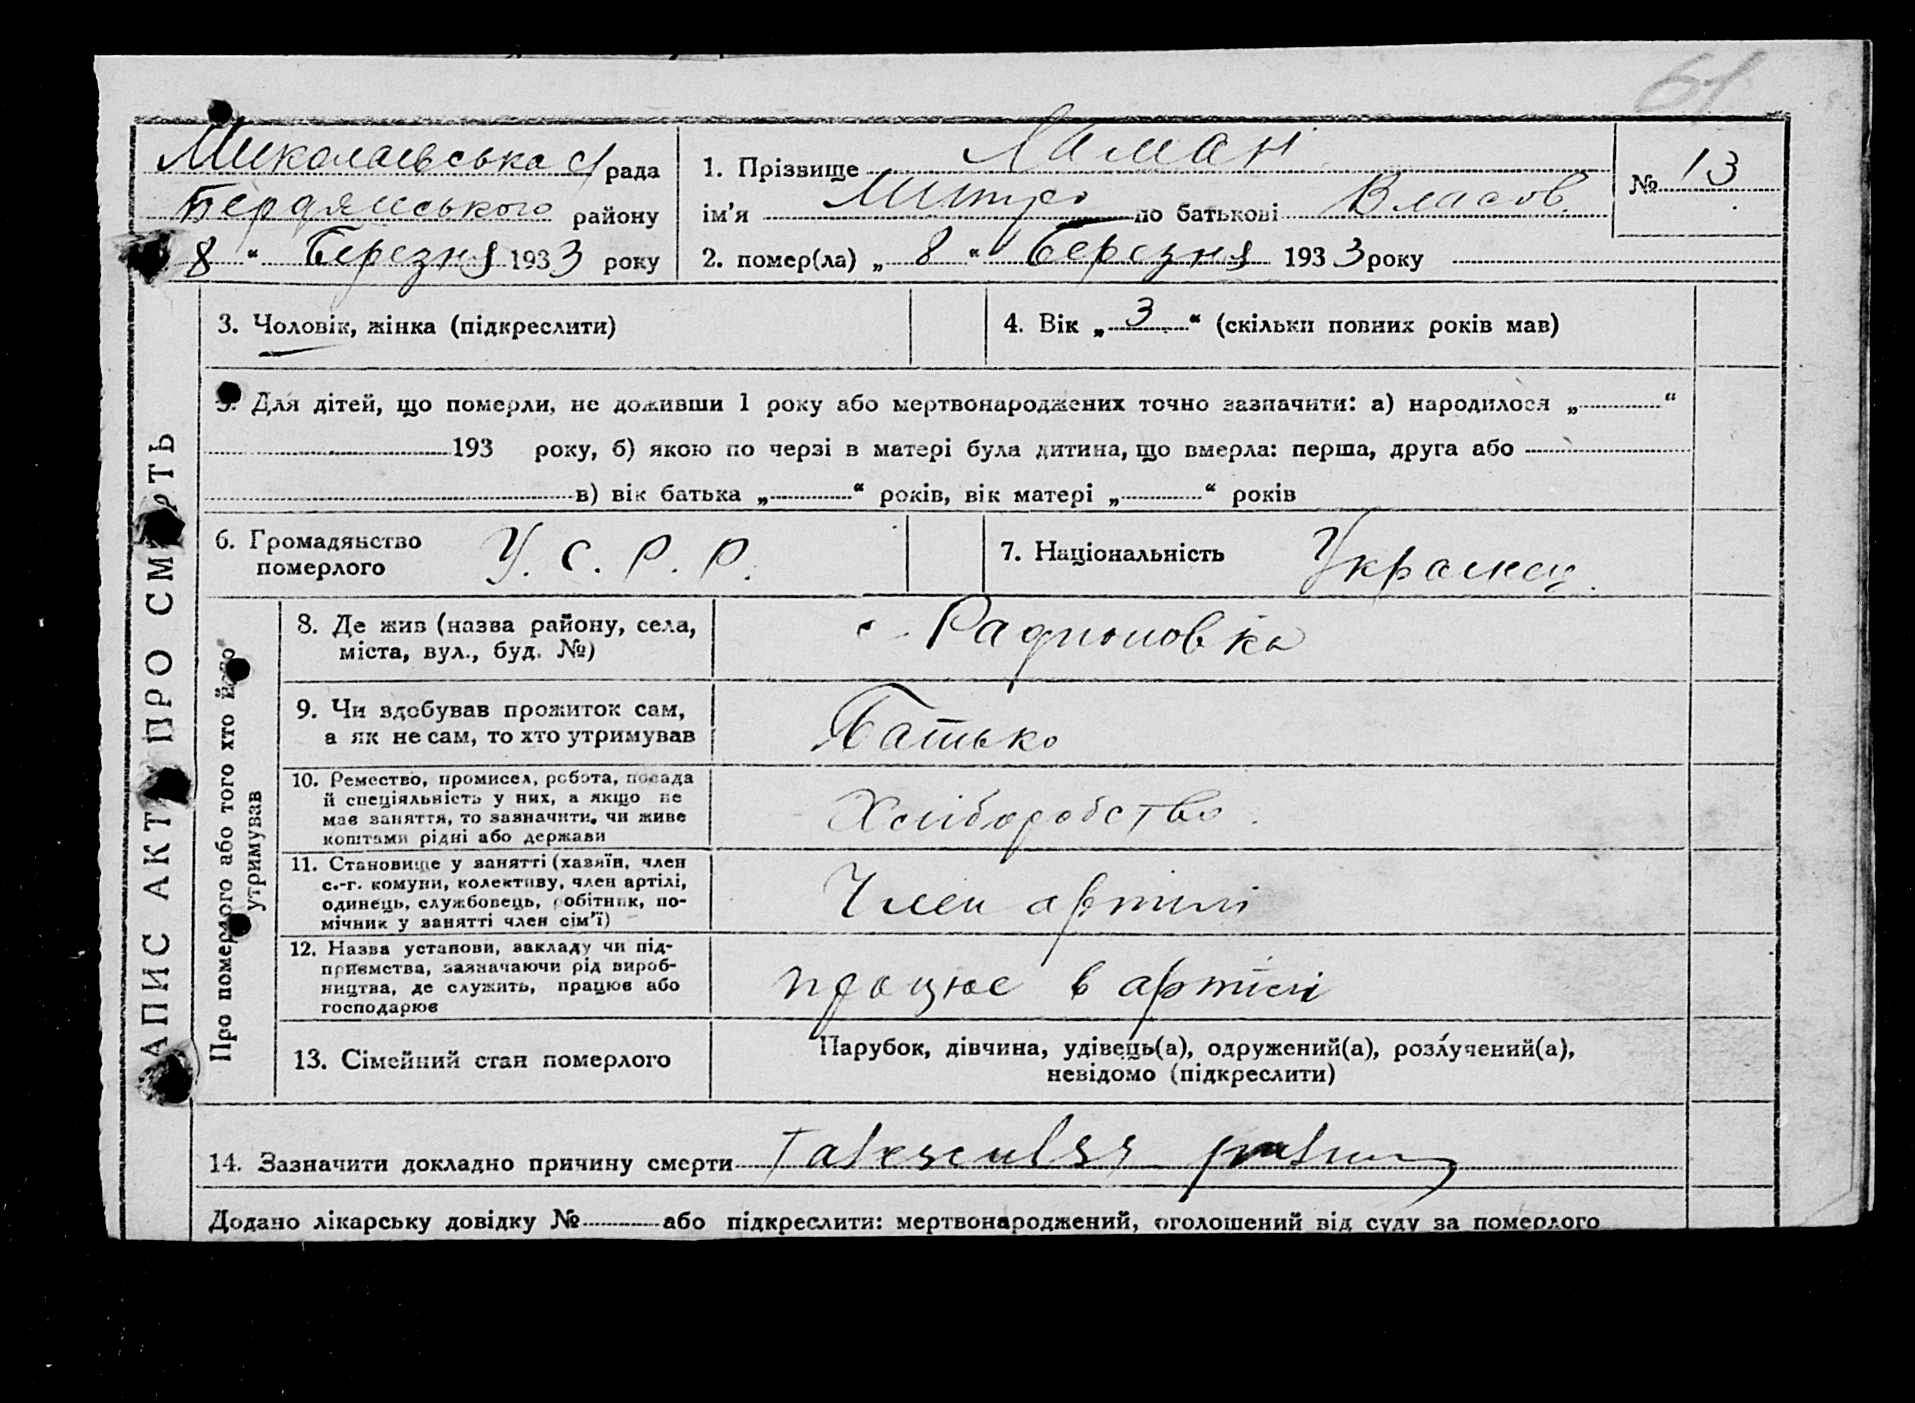 61
Миколаевська с/рада
Бердянського району
8 " Березня 1933 року
1. Прізвище Ламан
ім'я Митро по батькові Власов.
№ 13
2. помер(ла) „ 8 " Березня 1933 року
3. Чоловік, жінка (підкреслити)
4. Вік „ 3 " (скільки повних років мав)
5. Для дітей, що померли, не доживши 1 року або мертвонароджених точно зазначити: а) народилося „ "
193 року, б) якою по черзі в матері була дитина, що вмерла: перша, друга або
в) вік батька „ " років, вік матері „ " років
6. Громадянство
померлого
У. С. Р. Р.
7. Національність Украинец.
ЗАПИС АКТУ ПРО СМЕРТЬ
Про померлого або того хто його
утримував
8. Де жив (назва району, села,
міста, вул., буд. №)
с. Радионовка
9. Чи здобував прожиток сам,
а як не сам, то хто утримував
Батько
10. Ремество, промисел, робота, посада
й спеціяльність у них, а якщо не
мав заняття, то зазначити, чи живе
коштами рідні або держави
Хліборобство.
11. Становище у занятті (хазяїн, член
с.-г. комуни, колективу, член артілі,
одинець, службовець, робітник, по-
мічник у занятті член сім'ї)
Член артилі
12. Назва установи, закладу чи під-
приємства, зазначаючи рід вироб-
ництва, де служить, працює або
господарює
працює в артілі
13. Сімейний стан померлого
Парубок, дівчина, удівець(а), одружений(а), розлучений(а),
невідомо (підкреслити)
14. Зазначити докладно причину смерти
Додано лікарську довідку № або підкреслити: мертвонароджений, оголошений від суду за померлого